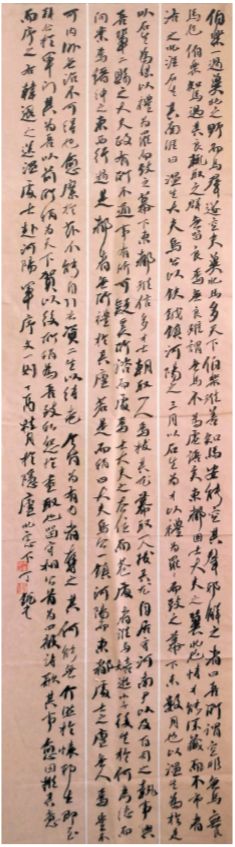 伯樂一過冀北之野而馬群遂空夫冀北馬多天下伯樂雖善知馬安能空其群耶解之者曰吾所謂空非無馬也無良
馬也伯樂知馬遇其良輒取之群無留良焉苟無良雖謂無馬不為虛語矣東都固士大夫之冀北也恃才能深藏而不市者
之北涯曰石生其南涯曰溫生大夫烏公以鈇鉞鎮河陽之三月以石生為才以禮為羅而致之幕下未數月也以溫生為才於是
以石生為媒以禮為羅而致之幕下東都雖信多才士朝取一人焉拔其尤暮取一人拔其尤自居守河南尹以及百司之執事與
吾輩二縣之大夫政有所不通事有所可疑奚所諮而處焉士大夫之去位而巷處者誰與嬉遊小子後生於何考德而
問業焉縉紳之東西行過是都者無所禮於其廬若是而稱曰大夫烏公鎮河陽而東都處士之廬無人焉豈不
可內外無治不可得也愈縻於茲不能自引去資二生以待老今皆為有力者奪之其何能無介然於懷耶生即至
拜公於軍門其為吾以前所稱為天下賀以後所稱為吾致私怨於盡取也留守相公首為四韻詩歌其事愈因推其意
而序之右韓退之送溫處士赴河陽軍序文一則丁亥桂月於隱廬